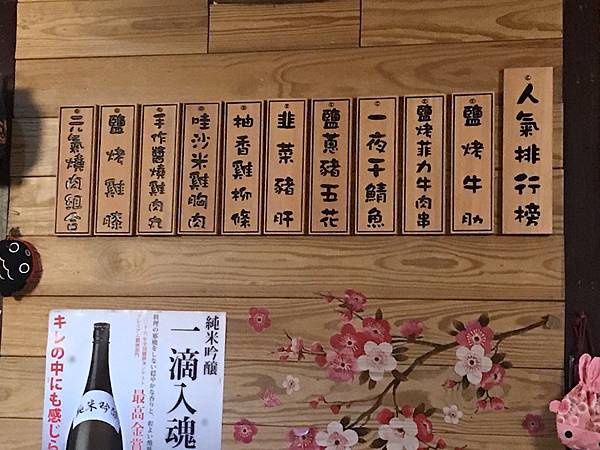 人氣排行榜
鹽烤牛肋
鹽烤菲力牛肉串
一夜干鯖魚
鹽蔥豬五花
韭菜豬肝
柚香雞柳條
哇沙米雞胸肉
手作醬燒雞肉丸
鹽烤雞膝
元氣燒肉組合
純米吟醸
一滴入魂
最高金賞
キレの中にも感じら
純米吟